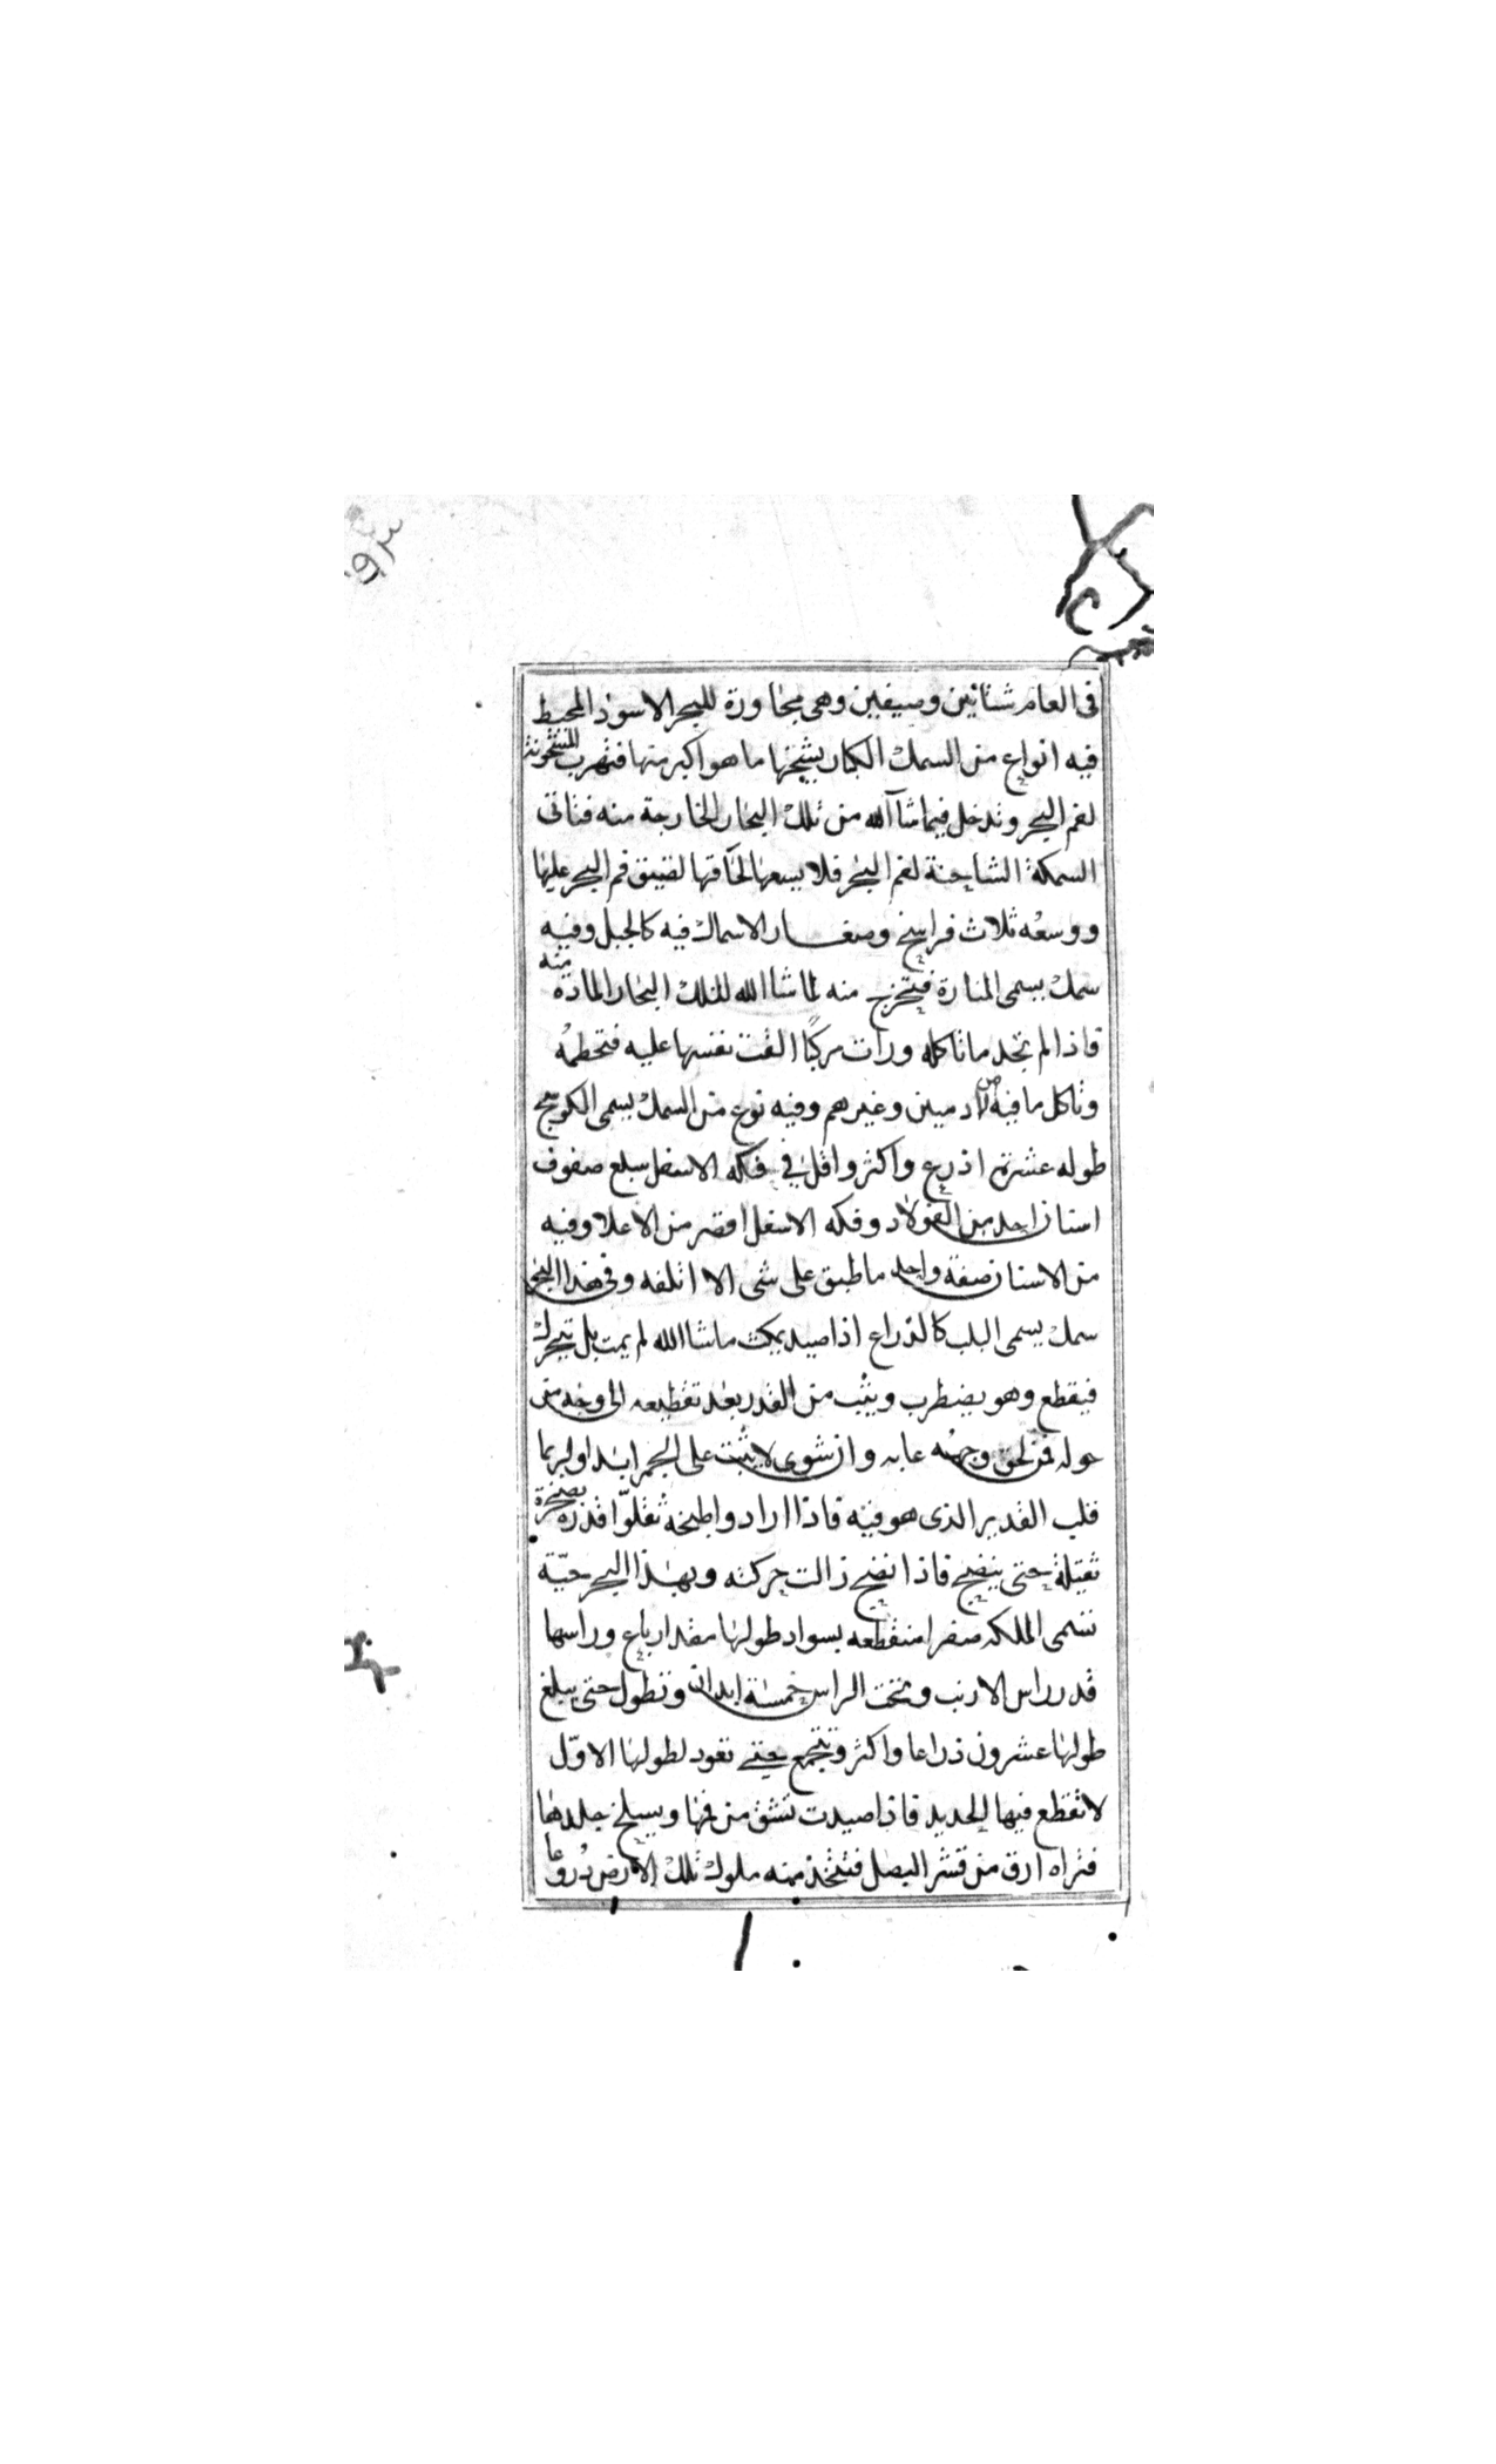 فى العام شتائين وصيفين وهى مجاورة للبحر الاسود المحيط
فيه انواع من السمك الكبار يشحنها ما هو اكبر منها فتهرب
لفم البحر وتدخل فيما شاآلله من تلك البحار الخارجة منه فتاتى
السمكة الشاحنة لفم البحر فلا يسعها لحآقها لضيق فم البحر عليها
ووسعُه ثلاث فراسخ وصغار الاسماك فيه كالجبل وفيه
سمك يسمى المنارة فيخرج منه لما شاالله لتلك البحار المادة منه
فاذا لم تجد ما تاكله ورات مركبًا القت نفسها عليه فتحطمُه
وتاكل ما فيه من الادميين وغيرهم وفيه نوع من السمك يسمى الكوسج
طوله عشرة اذرع واكثر واقل فى فكه الاسفل سبع صفوف
اسنان احد من الفولاد وفكه الاسفل اقصر من الاعلا وفيه
من الاسنان صفة واحد ما طبق على شى الا اتلفه وفى هذا البحر
سمك يسمى البلب كالذراع اذا صيد يمكث ماشاالله لم يمت بل يتحرك
فيقطع وهو يضطرب ويثب من القدر بعد تقطيعه الى وجه من
حوله فمن لحق وجهُه عابه وان شوى لا يثبت على الجمر ابدا ولربما
قلب القدير الذى هو فيه فاذا ارادوا طبخه ثقلوّا قدره بصخرة
ثقيلة حتى ينضج فاذا نضج زالت حركته وبهذا البحر حيّة
تسمى الملكه صفرا منقطعه بسواد طولها مقدار باع وراسها
قدر راس الارنب وتحت الراس خمسة ابدان وتطول حتى يبلغ
طولها عشرون ذراعا واكثر وتجتمع حتى تعود لطولها الاوّل
لا تقطع فيها الحديد فاذا صيدت تشق من فمها ويسلخ جلدها
فتراه ارق من قشر البصل فتتخذ منه ملوك تلك الارض دُروعًا